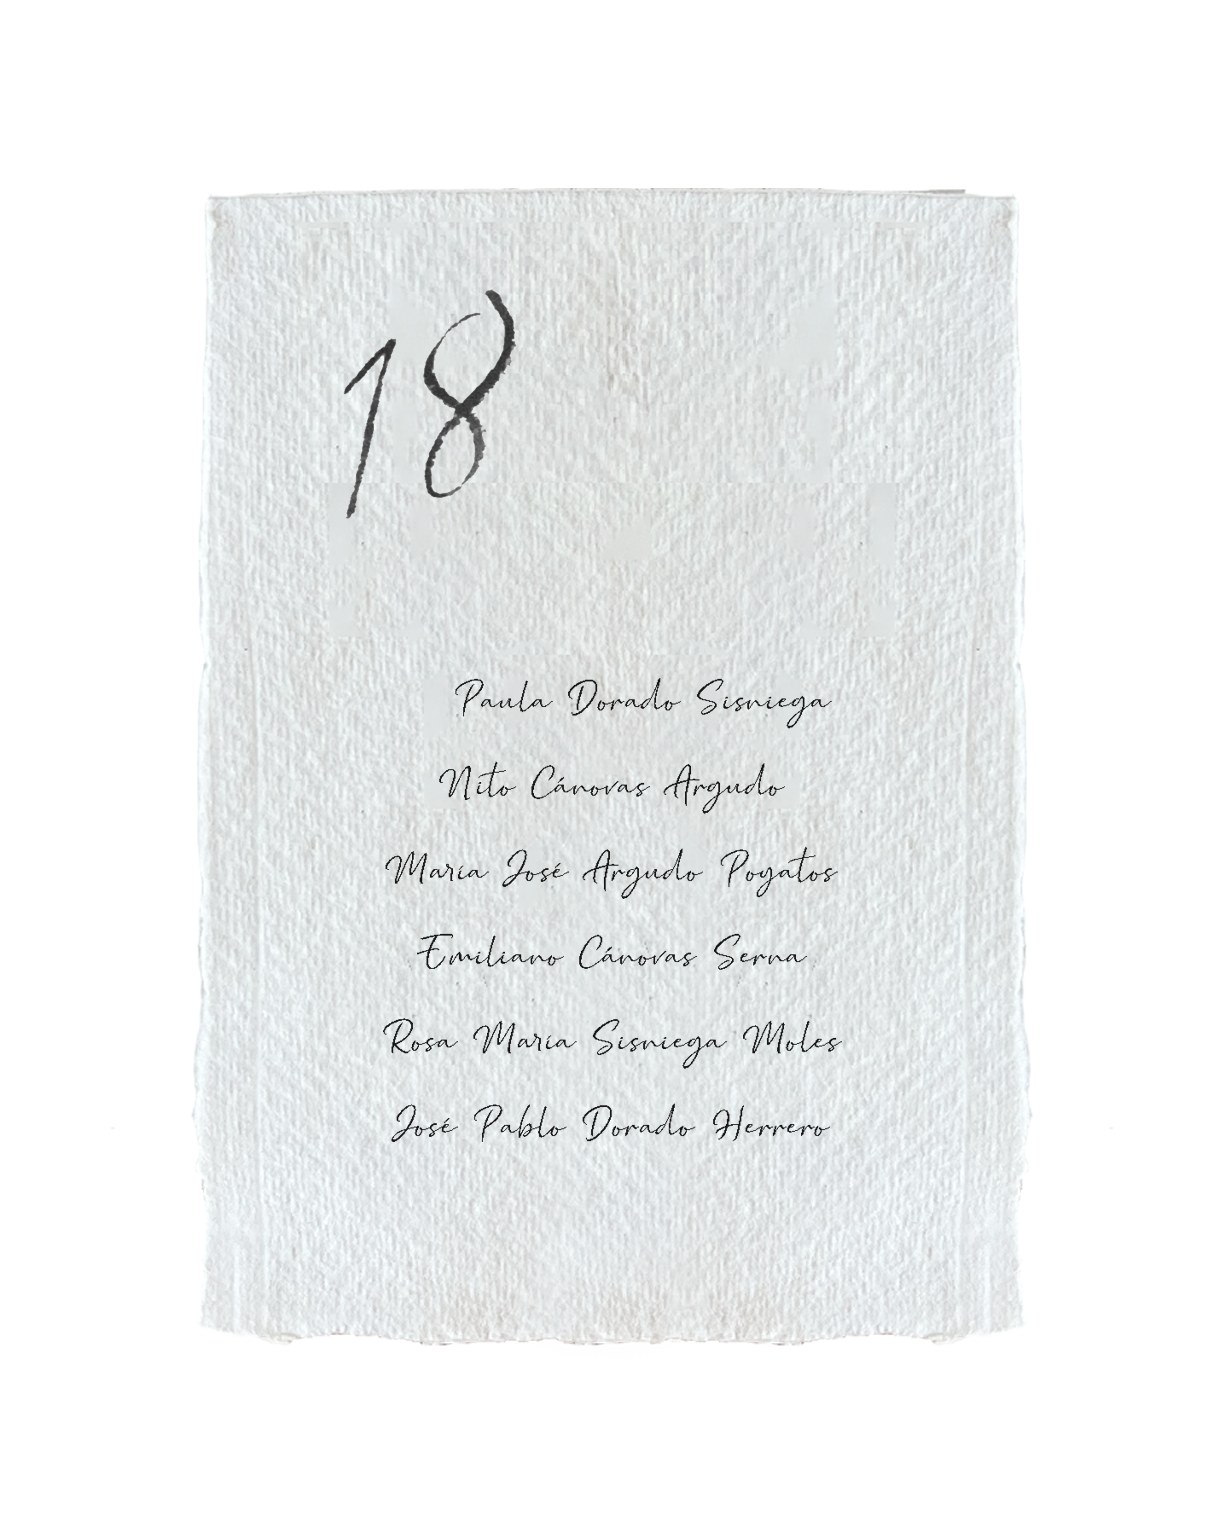 18
Paula Dorado Sisniega
Nito Cánovas Argudo
María José Argudo Poyatos
Emiliano Cánovas Serna
Rosa María Sisniega Moles
José Pablo Dorado Herrero